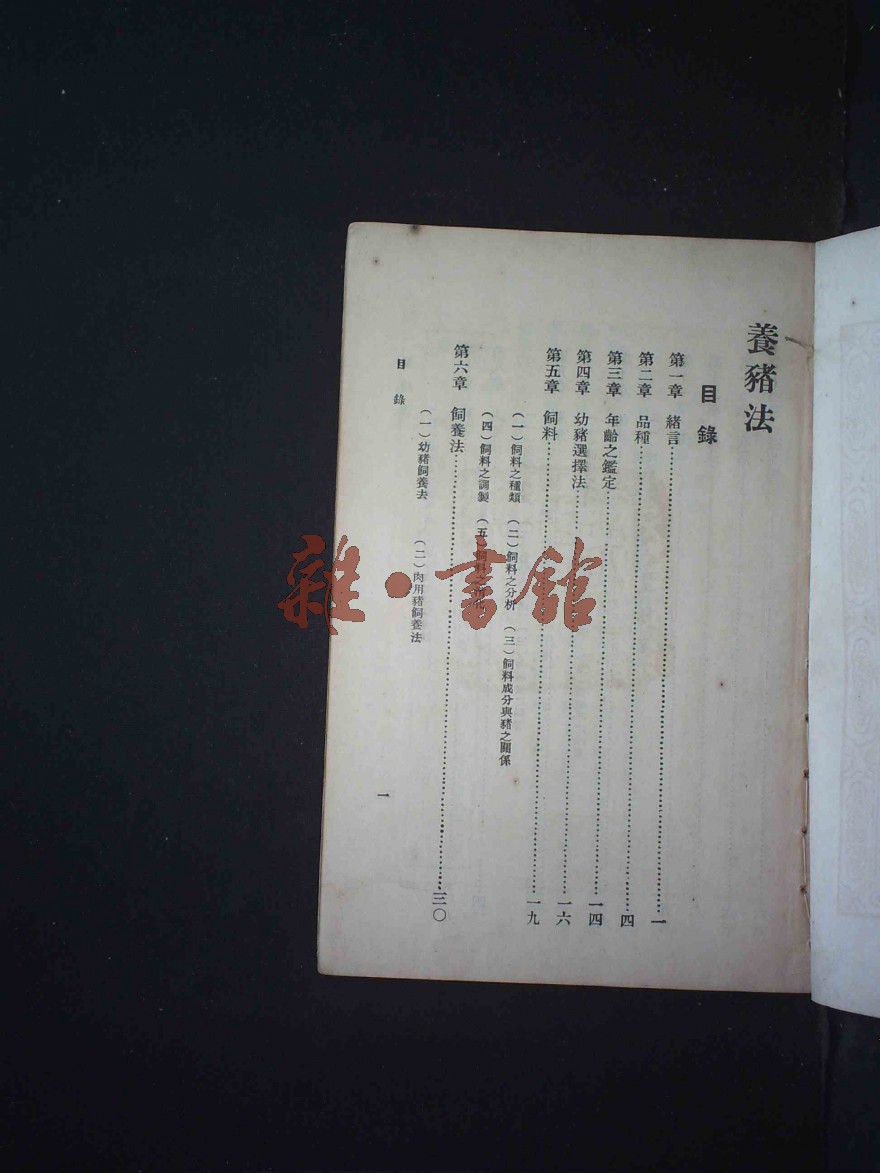 養豬法
目錄
第一章 緒言……一
第二章 品種……四
第三章 年齡之鑑定……一四
第四章 幼豬選擇法……一六
第五章 飼料……一九
（一）飼料之種類 （二）飼料之分析 （三）飼料成分與豬之關係
（四）飼料之調製 （五）飼料之
第六章 飼養法……三〇
（一）幼豬飼養法 （二）肉用豬飼養法
目錄
一
雜·書館